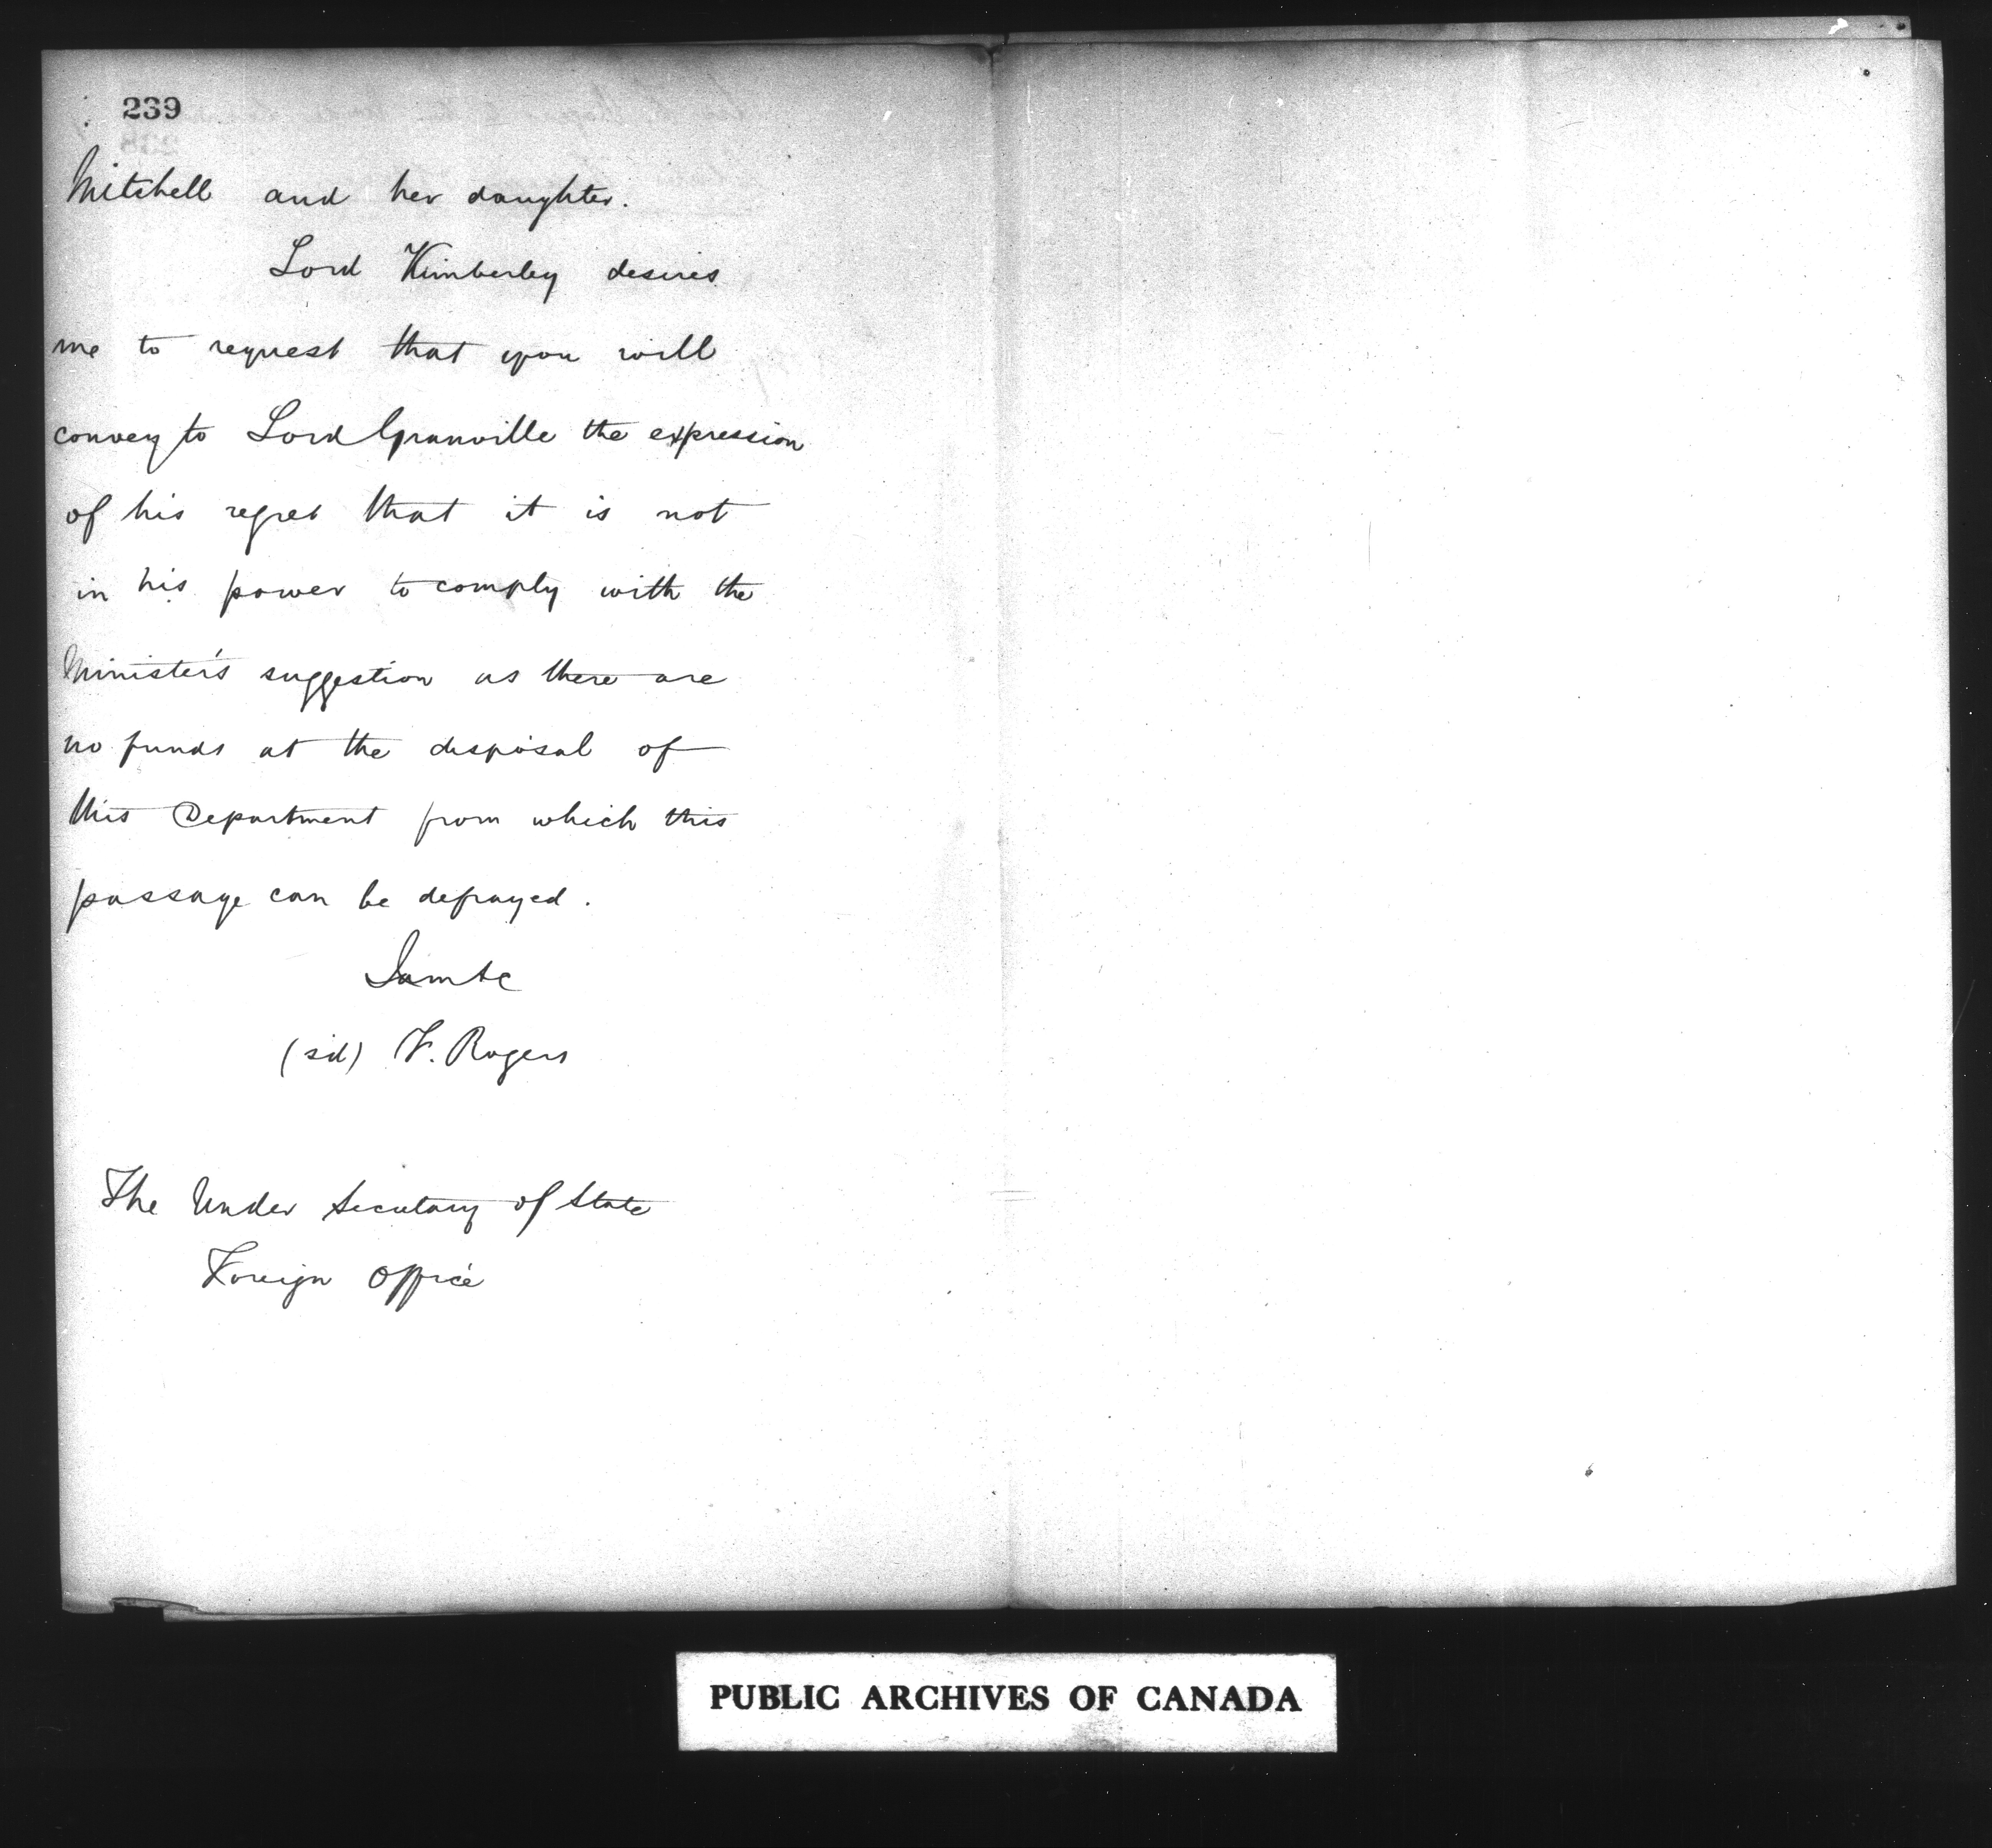 239
Mitchell and her daughter.
Lord Kimberley desires
me to request that you will
convey to Lord Granville the expression
of his regret that it is not
in his power to comply with the
Minister's suggestion as there are
no funds at the disposal of
this Department from which this
passage can be defrayed.
I am &c
(sd) F. Rogers
The Under Secretary of State
Foreign Office
PUBLIC ARCHIVES OF CANADA